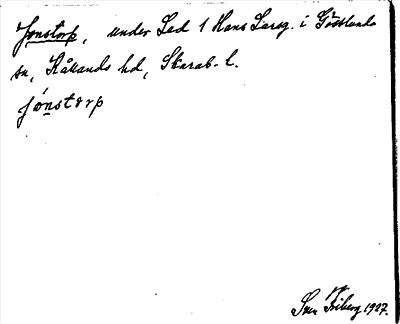 Jonstorp, under Led 1 Hans Larsg. i Gösslunda
sn, Kållands hd, Skarab. l.
jónstorp
Sven Friberg 1927.